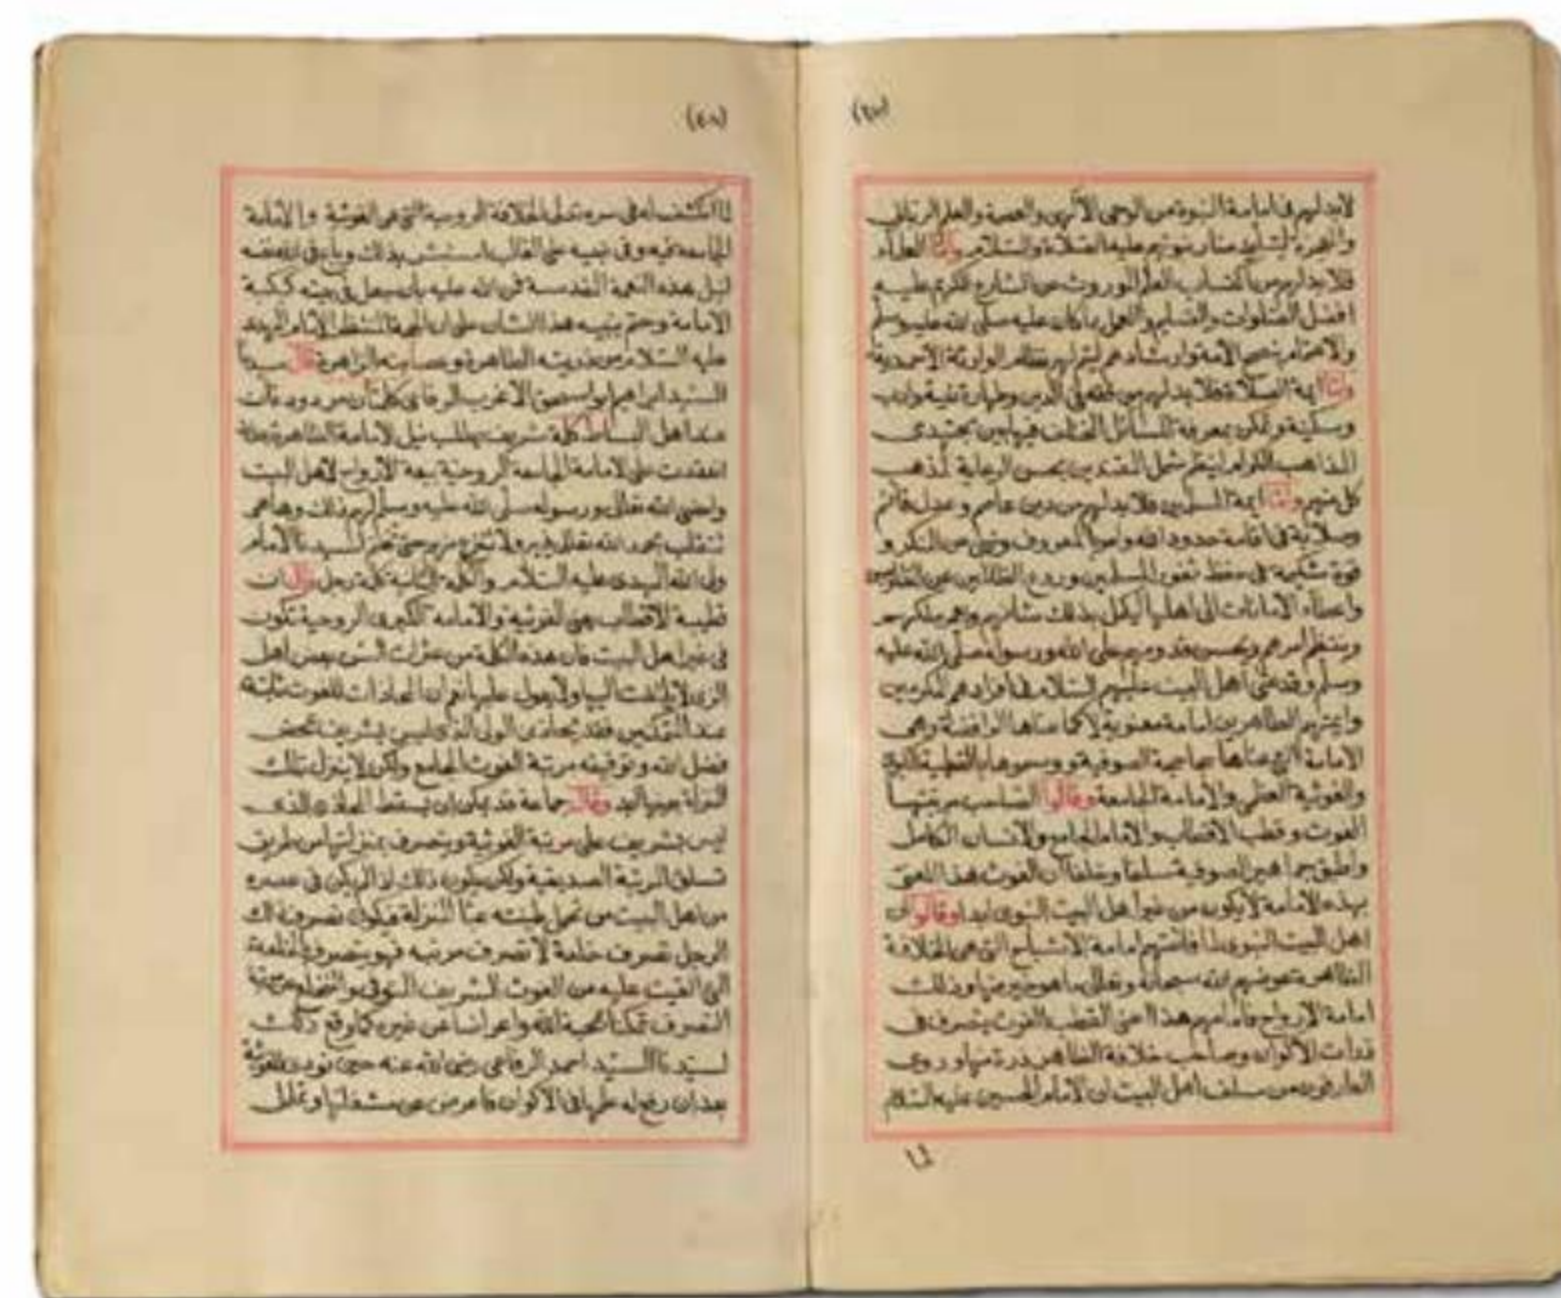 (٤٧)
لابد لهم في امامة النبوة من الوحي الالهي والعصمة والعلم الرباني
والمعجزة لتأييد منار نبوتهم عليه الصلاة والسلام واما العلماء
فلابد لهم من اكتساب العلم الموروث عن الشارع المكرم عليه
افضل الصلوات والتسليم والعمل بما كان عليه صلى الله عليه وسلم
والاهتمام بنصح الامة وارشادهم ليتم لهم نظام الوارثة الاحمدية
واما ايمة الصلاة فلابد لهم من فقه في الدين وطهارة نقية وادب
وسكينة وتمكن بمعرفة المسائل المختلف فيها بين مجتهدي
المذاهب الكرام لينتظم شمل المقتدين بحسن الرعاية لمذهب
كل منهم واما ايمة المسلمين فلابد لهم من دين عاصم وعدل قائم
وصلابة في اقامة حدود الله وامر بالمعروف ونهي عن المنكر و
قوة شكيمة في حفظ ثغور المسلمين وردع الظالمين عن المظلومين
واعطاء الامانات الى اهلها ليكمل بذلك شانهم
وينتظم امرهم ويحسن قدومهم على الله ورسوله صلى الله عليه
وسلم وقد اهل البيت عليهم السلام افرادهم المكرمين
وايمتهم الطاهرين امامة معنوية لا كما عناها الرافضة وهي
الامامة التي عناها الصوفية ووسموها بالقطبية الكبرى
والغوثية العظمى والامامة الجامعة وقالوا لصاحب مرتبتها
الغوث وقطب الاقطاب والامام الجامع والانسان الكامل
واطبق جماهير الصوفية سلفا وخلفا ان الغوث هذا المعني
بهذه الامامة لا يكون من غير اهل البيت النبوي ابدا وقالوا ان
اهل البيت النبوي لما فاتتهم امامة الاشباح التي هي الخلافة
الظاهرة عوضهم الله سبحانه وتعالى ما هو خير منها وذلك
امامة الارواح فامامهم هذا اعني القطب الغوث يتصرف في
ذرات الاكوان وصاحب خلافة الظاهر ذرة منها وروى
العارفون من سلف اهل البيت ان الامام الحسين عليه السلام
لما
(٤٨)
لما انكشف له في سره الخلافة الروحية التي هي الغوثية والامامة
الجامعة فيه وفي بنيه على الغالب استبشر بذلك وباع في الله نفسه
لنيل هذه النعمة المقدسة فمن الله عليه بان جعل في بيته كبكبة
الامامة وختم ببنيه هذا الشان على ان الحجة المنتظر الامام المهدي
عليه السلام من ذريته الطاهرة وعصابته الزاهرة قال سيدنا
السيد ابراهيم ابو اسحق الاعزب الرفاعي كلمتان مردودتان
عند اهل البساط كلمة شريف يطلب نيل الامامة الظاهرة
انعقدت على الامامة الجامعة الروحية بيعة الارواح لاهل البيت
وامضى الله تعالى ورسوله صلى الله عليه وسلم لهم ذلك وها هي
تتقلب بحمد الله تعالى فيهم ولا تخرج منهم حتى تختم لسيدنا الامام
ولي الله المهدي عليه السلام والكلمة الثانية كلمة رجل قال ان
قطبية الاقطاب يعني الغوثية والامامة الكبرى الروحية تكون
في غير اهل البيت فان هذه الكلمة من عثرات السن بعض اهل
الري لا يلتفت اليها ولا يعول عليها نعم ان المحاذات للغوث ثابتة
عند المتمكنين فقد يحاذي الولي الذي ليس بشريف بمحض
فضل الله وتوفيقه مرتبة الغوث الجامع ولكن لا ينزل تلك
المنزلة وقال جماعة قد يمكن ان يسقط المحاذي الذي
ليس بشريف على مرتبة الغوثية ويتصرف بمنزلتها من طريق
تسلق المرتبة الصديقية ولكن يكون ذلك اذا لم يكن في عصره
من اهل البيت من تحمل طينته عبأ المنزلة فيكون تصرف ذلك
الرجل تصرف خلعة لا تصرف مرتبة فهو يتصرف بالخلعة
التي القيت عليه من الغوث الشريف المتوفي
التصرف تمكنا بمحبة الله واعراضا عن غيره كما وقع ذلك
لسيدنا السيد احمد الرفاعي رضي الله عنه حين نودي بالغوثية
بعد ان رفع له علمها في الاكوان فاعرض عن مشغلتها وتململ